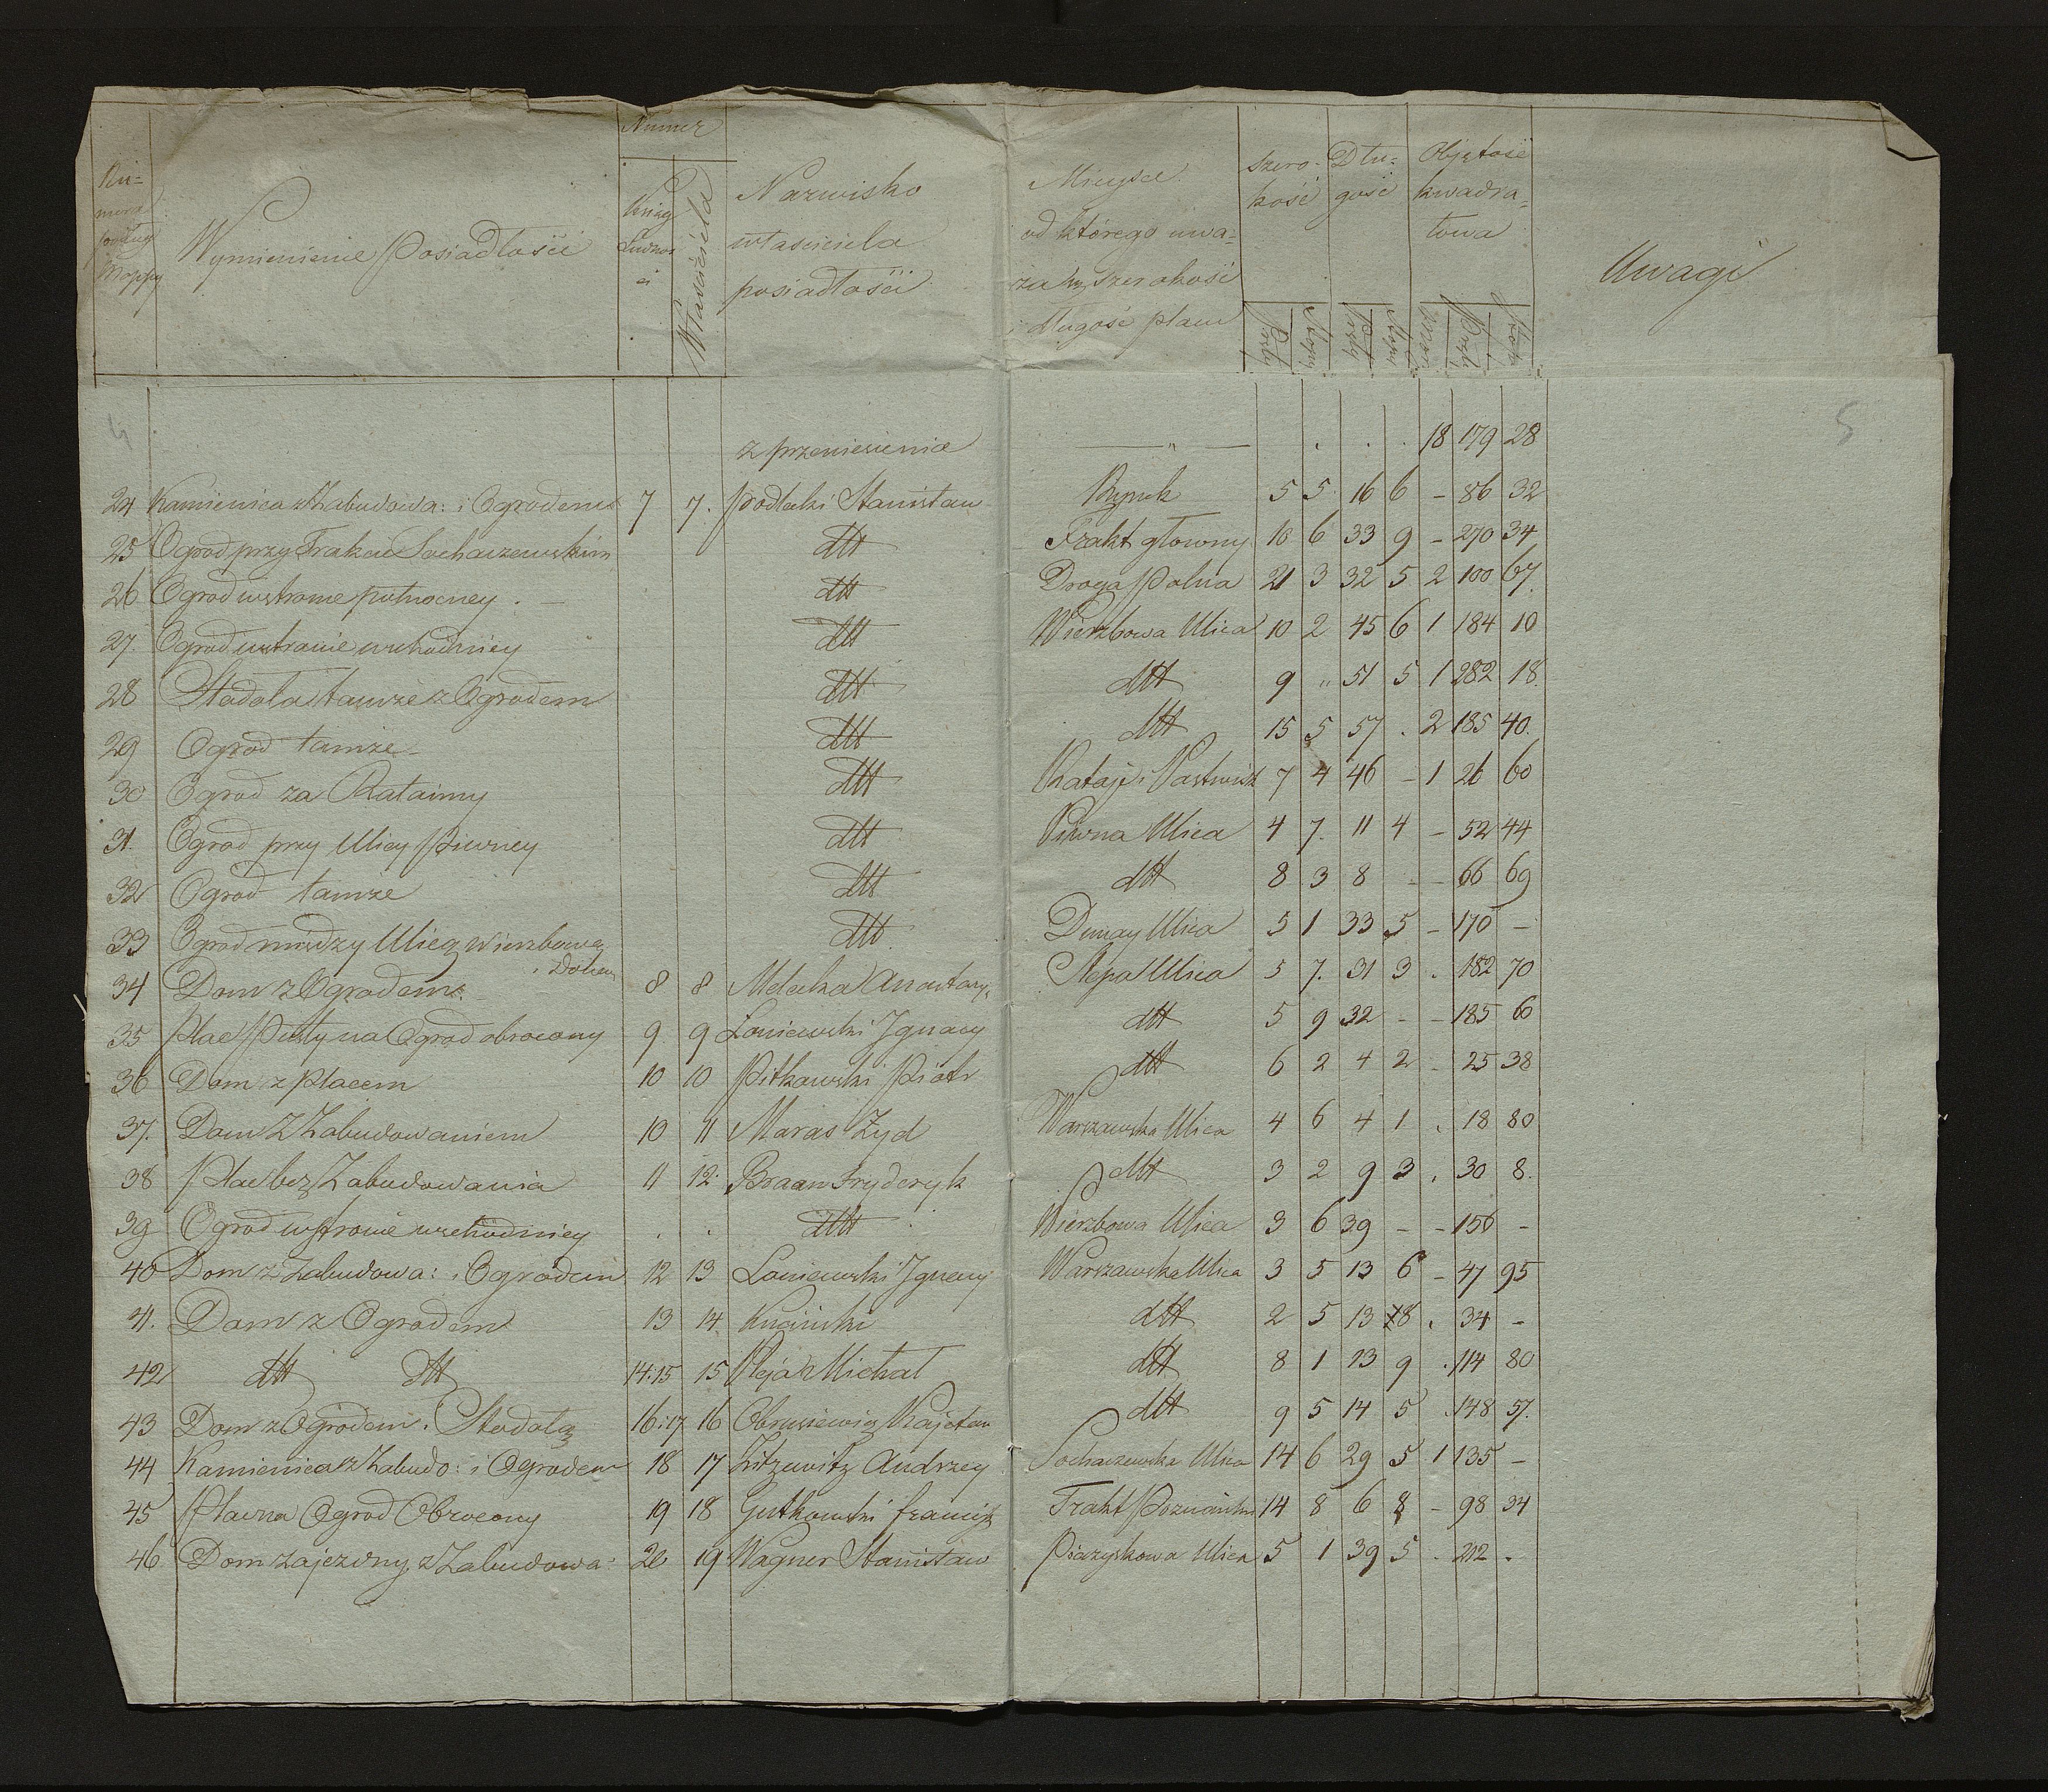 Numer
Nu=
mera
podług
Mappy
Wymienienie Posiadłości
Księg
Ludnoś
ci
Właściciela
Nazwisko
własciciela
posiadłości
Mieysce
od którego uwa=
za się szerokość
i długość placu
Szero=
kość
Dłu=
gość
Objętość
kwadra=
towa
Uwagi
Pręty Stopy Pręty Stopy Morgi Pręty Stopy
4 5
z przeniesienia — " — . . . 18 179 28
24 Kamienica z Zabudowa: i Ogrodem 7 7. Podlecki Stanisław Rynek 5 5 16 6 – 86 32
25 Ogrod przy Trakcie Sochaczewskim dtt Trakt głowny 10 6 33 9 – 270 34
26 Ogrod w stronie pułnocney . — dtt Droga Polna 21 3 32 5 2 100 67.
27. Ogrod w stronie wschodniey dtt Wierzbowa Ulica 10 2 45 6 1 184 10
28 Stodoła tamże z Ogrodem dtt dtt 9 " 51 5 1 282 18.
29 Ogrod tamże dtt dtt 15 5 57 . 2 185 40.
30 Ogrod za Ratainy dtt Rataje i Pastwisk 7 4 46 – 1 26 60
31. Ogrod przy Ulicy Piwney dtt Piwna Ulica 4 7. 11 4 – 52 44
32 Ogrod tamże dtt dtt 8 3 8 – – 66 69
33 Ogrod między Ulicą Wierzbową dtt Dunay Ulica 5 1 33 5 – 170 –
34 Dom z Ogrodem 8 8 Melecka Anastazy: Slepa Ulica 5 7. 31 3 . 182 70
35 Plac Pusty na Ogrod obrocony 9 9 Loniewski Ignacy dtt 5 9 32 – – 185 60
36 Dom z Placem 10 10 Pitkowski Piotr dtt 6 2 4 2 – 25 38
37. Dom z Zabudowaniem 10 11 Maras Zyd Warszawska Ulica 4 6 4 1 . 18 80
38 Plac bez Zabudowania 11 12 Braan Fryderyk dtt 3 2 9 3 . 30 8.
39 Ogrod w stronie wschodniey . . dtt Wierzbowa Ulica 3 6 39 – – 156 –
40 Dom z Zabudowa: i Ogrodem 12 13 Loniewski Ignacy Warszawska Ulica 3 5 13 6 – 47 95
41. Dom z Ogrodem 13 14 Kuciński dtt 2 5 13 8 . 34 –
42 dtt dtt 14:15 15 Plejak Michał dtt 8 1 13 9 . 114 80
43 Dom z Ogrodem i Stodołą 16:17 16 Obrusiewicz Kajetan dtt 9 5 14 5 . 148 57.
44 Kamienica z Zabudo: i Ogrodem 18 17 Litzewitz Andrzey Sochaczewska Ulica 14 6 29 5 1 135 –
45 Plac na Ogrod Obrocony 19 18 Gutkowski Francisz Trakt Poznański 14 8 6 8 – 98 34
46. Dom zajezdny z Zabudowa: 20 19 Wagner Stanisław Piazyskowa Ulica 5 1 39 5 . 212 .